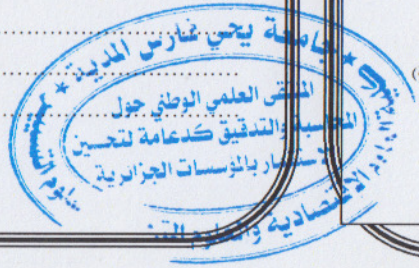 جامعة يحي فارس المدية
الملتقى العلمي الوطني حول
المحاسبة والتدقيق كدعامة لتحسين
الاستثمار بالمؤسسات الجزائرية
الاقتصادية والعلوم التـ